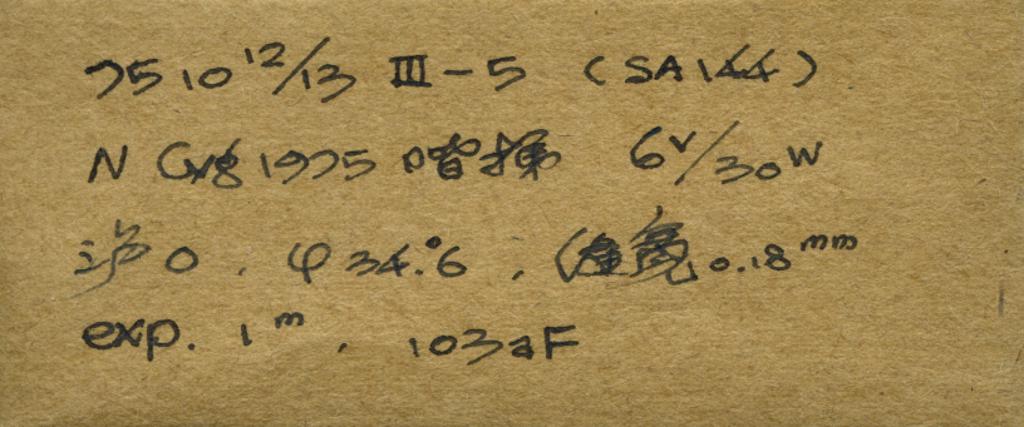 75 10 12/13 III-5 (SA144)
N Cyg 1975 暗 6V/30W
浮0. φ34.°6, 宽0.18mm
exp. 1m, 103aF